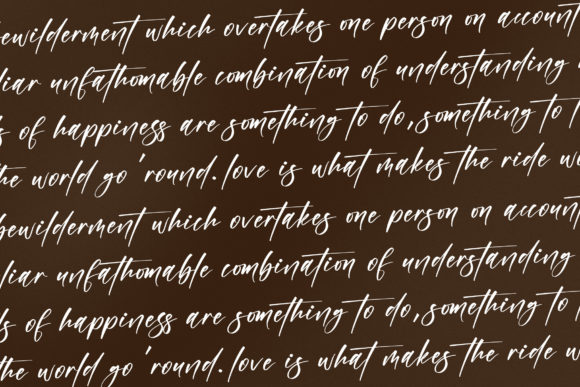 bewilderment which overtakes one person on account
liar unfathomable combination of understanding
s of happiness are something to do, something to
the world go 'round. love is what makes the ride wo
bewilderment which overtakes one person on account
liar unfathomable combination of understanding
s of happiness are something to do, something to
the world go 'round. love is what makes the ride w